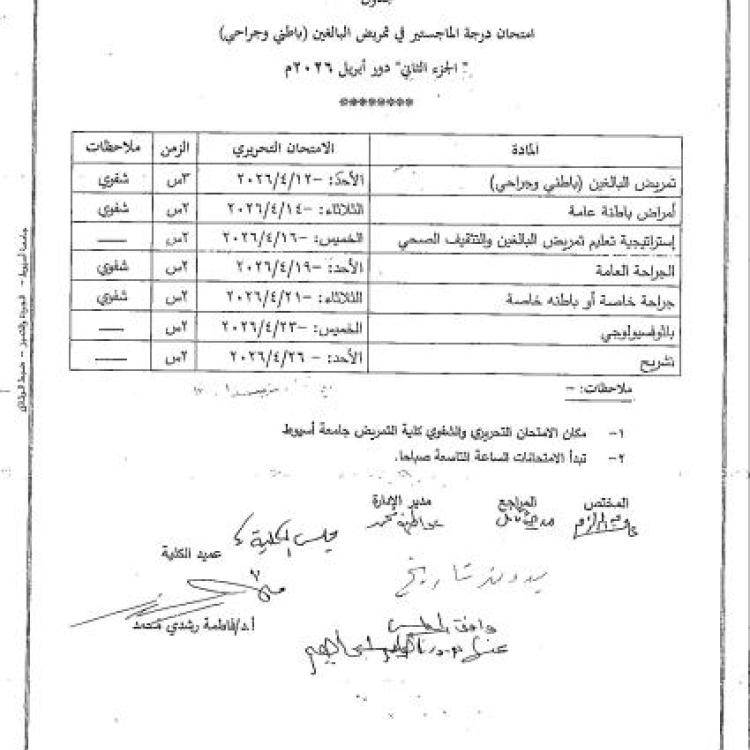 جدول
امتحان درجة الماجستير في تمريض البالغين (باطني وجراحي)
" الجزء الثاني" دور أبريل ٢٠٢٦م
********
المادة الامتحان التحريري الزمن ملاحظات
تمريض البالغين (باطني وجراحي) الأحد: -٢٠٢٦/٤/١٢ ٣س شفوي
أمراض باطنة عامة الثلاثاء: -٢٠٢٦/٤/١٤ ٢س شفوي
إستراتيجية تعليم تمريض البالغين والتثقيف الصحي الخميس: -٢٠٢٦/٤/١٦ ٢س ——
الجراحة العامة الأحد: -٢٠٢٦/٤/١٩ ٢س شفوي
جراحة خاصة أو باطنه خاصة الثلاثاء: -٢٠٢٦/٤/٢١ ٢س شفوي
باثوفسيولوجي الخميس: -٢٠٢٦/٤/٢٣ ٢س ——
تشريح الأحد: - ٢٠٢٦/٤/٢٦ ٢س ——
ملاحظات: -
١- مكان الامتحان التحريري والشفوي كلية التمريض جامعة أسيوط
٢- تبدأ الامتحانات الساعة التاسعة صباحا.
المختص المراجع مدير الإدارة
مجلس الكلية
عميد الكلية
بدون تاريخ
أ.د/فاطمة رشدي محمد
وافق المجلس
جامعة أسيوط -